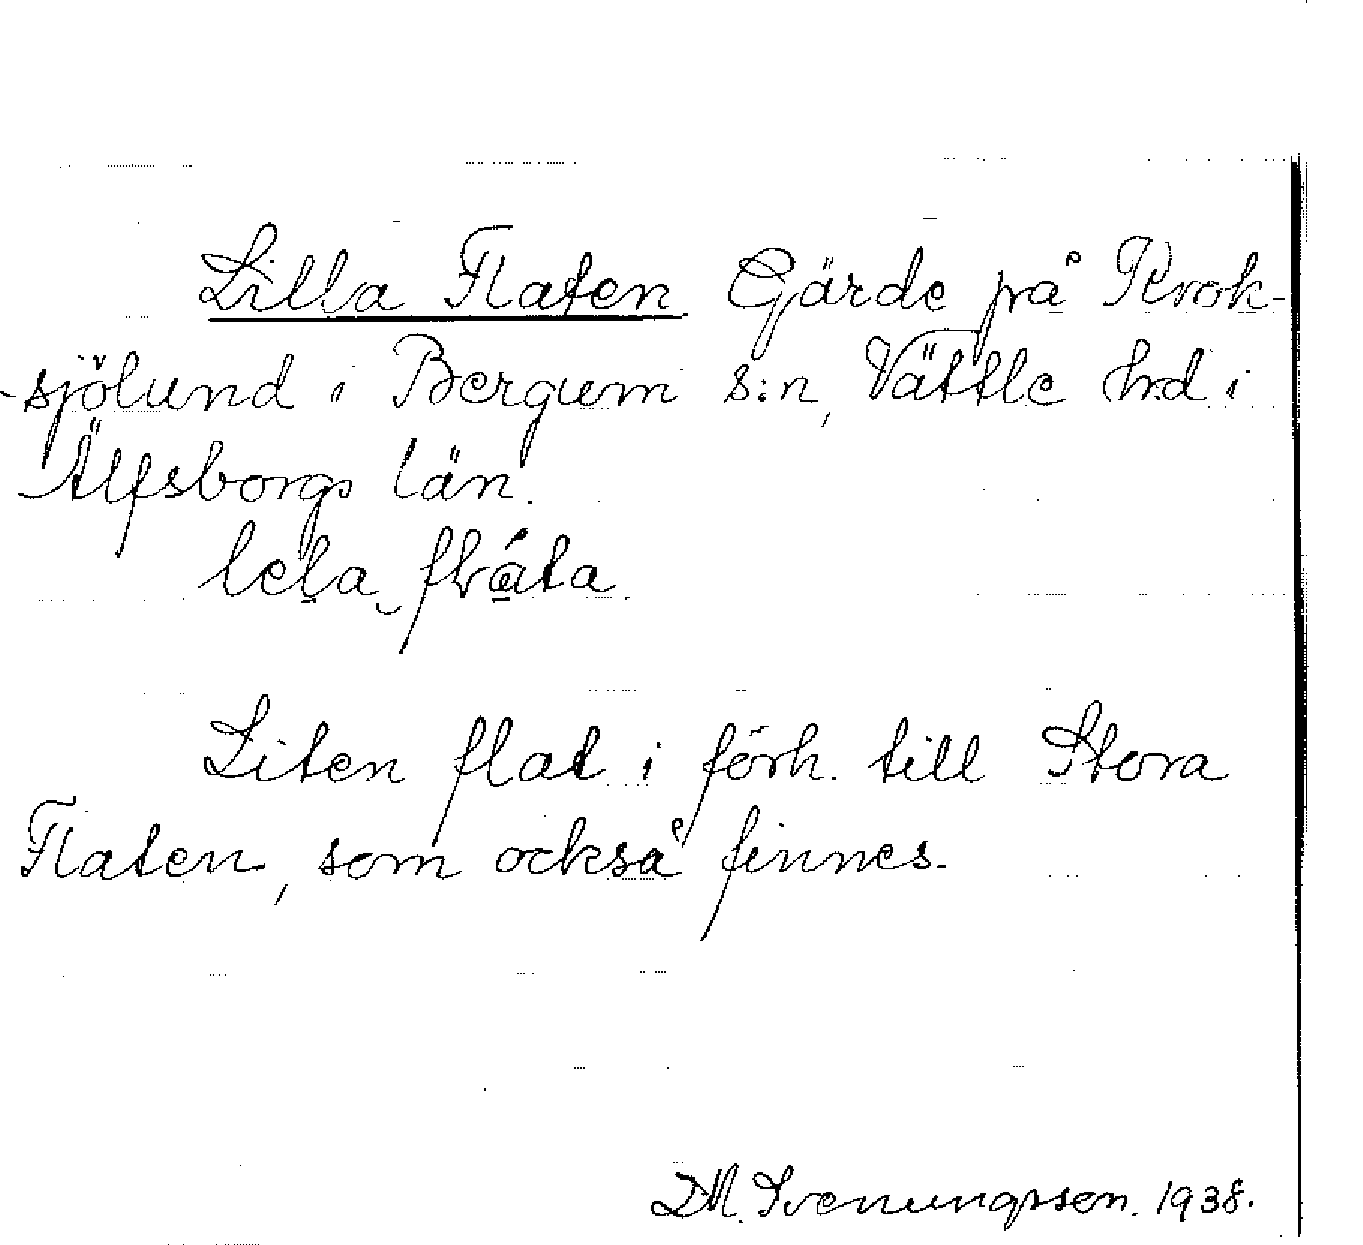 Lilla Flaten Gärde på Krok-
sjölund i Bergum s:n, Vättle hd i
Älfsborgs län.
lela flåta.
Liten flat i förh. till Stora
Flaten, som också finnes.
D.M. Svenungsson. 1938.